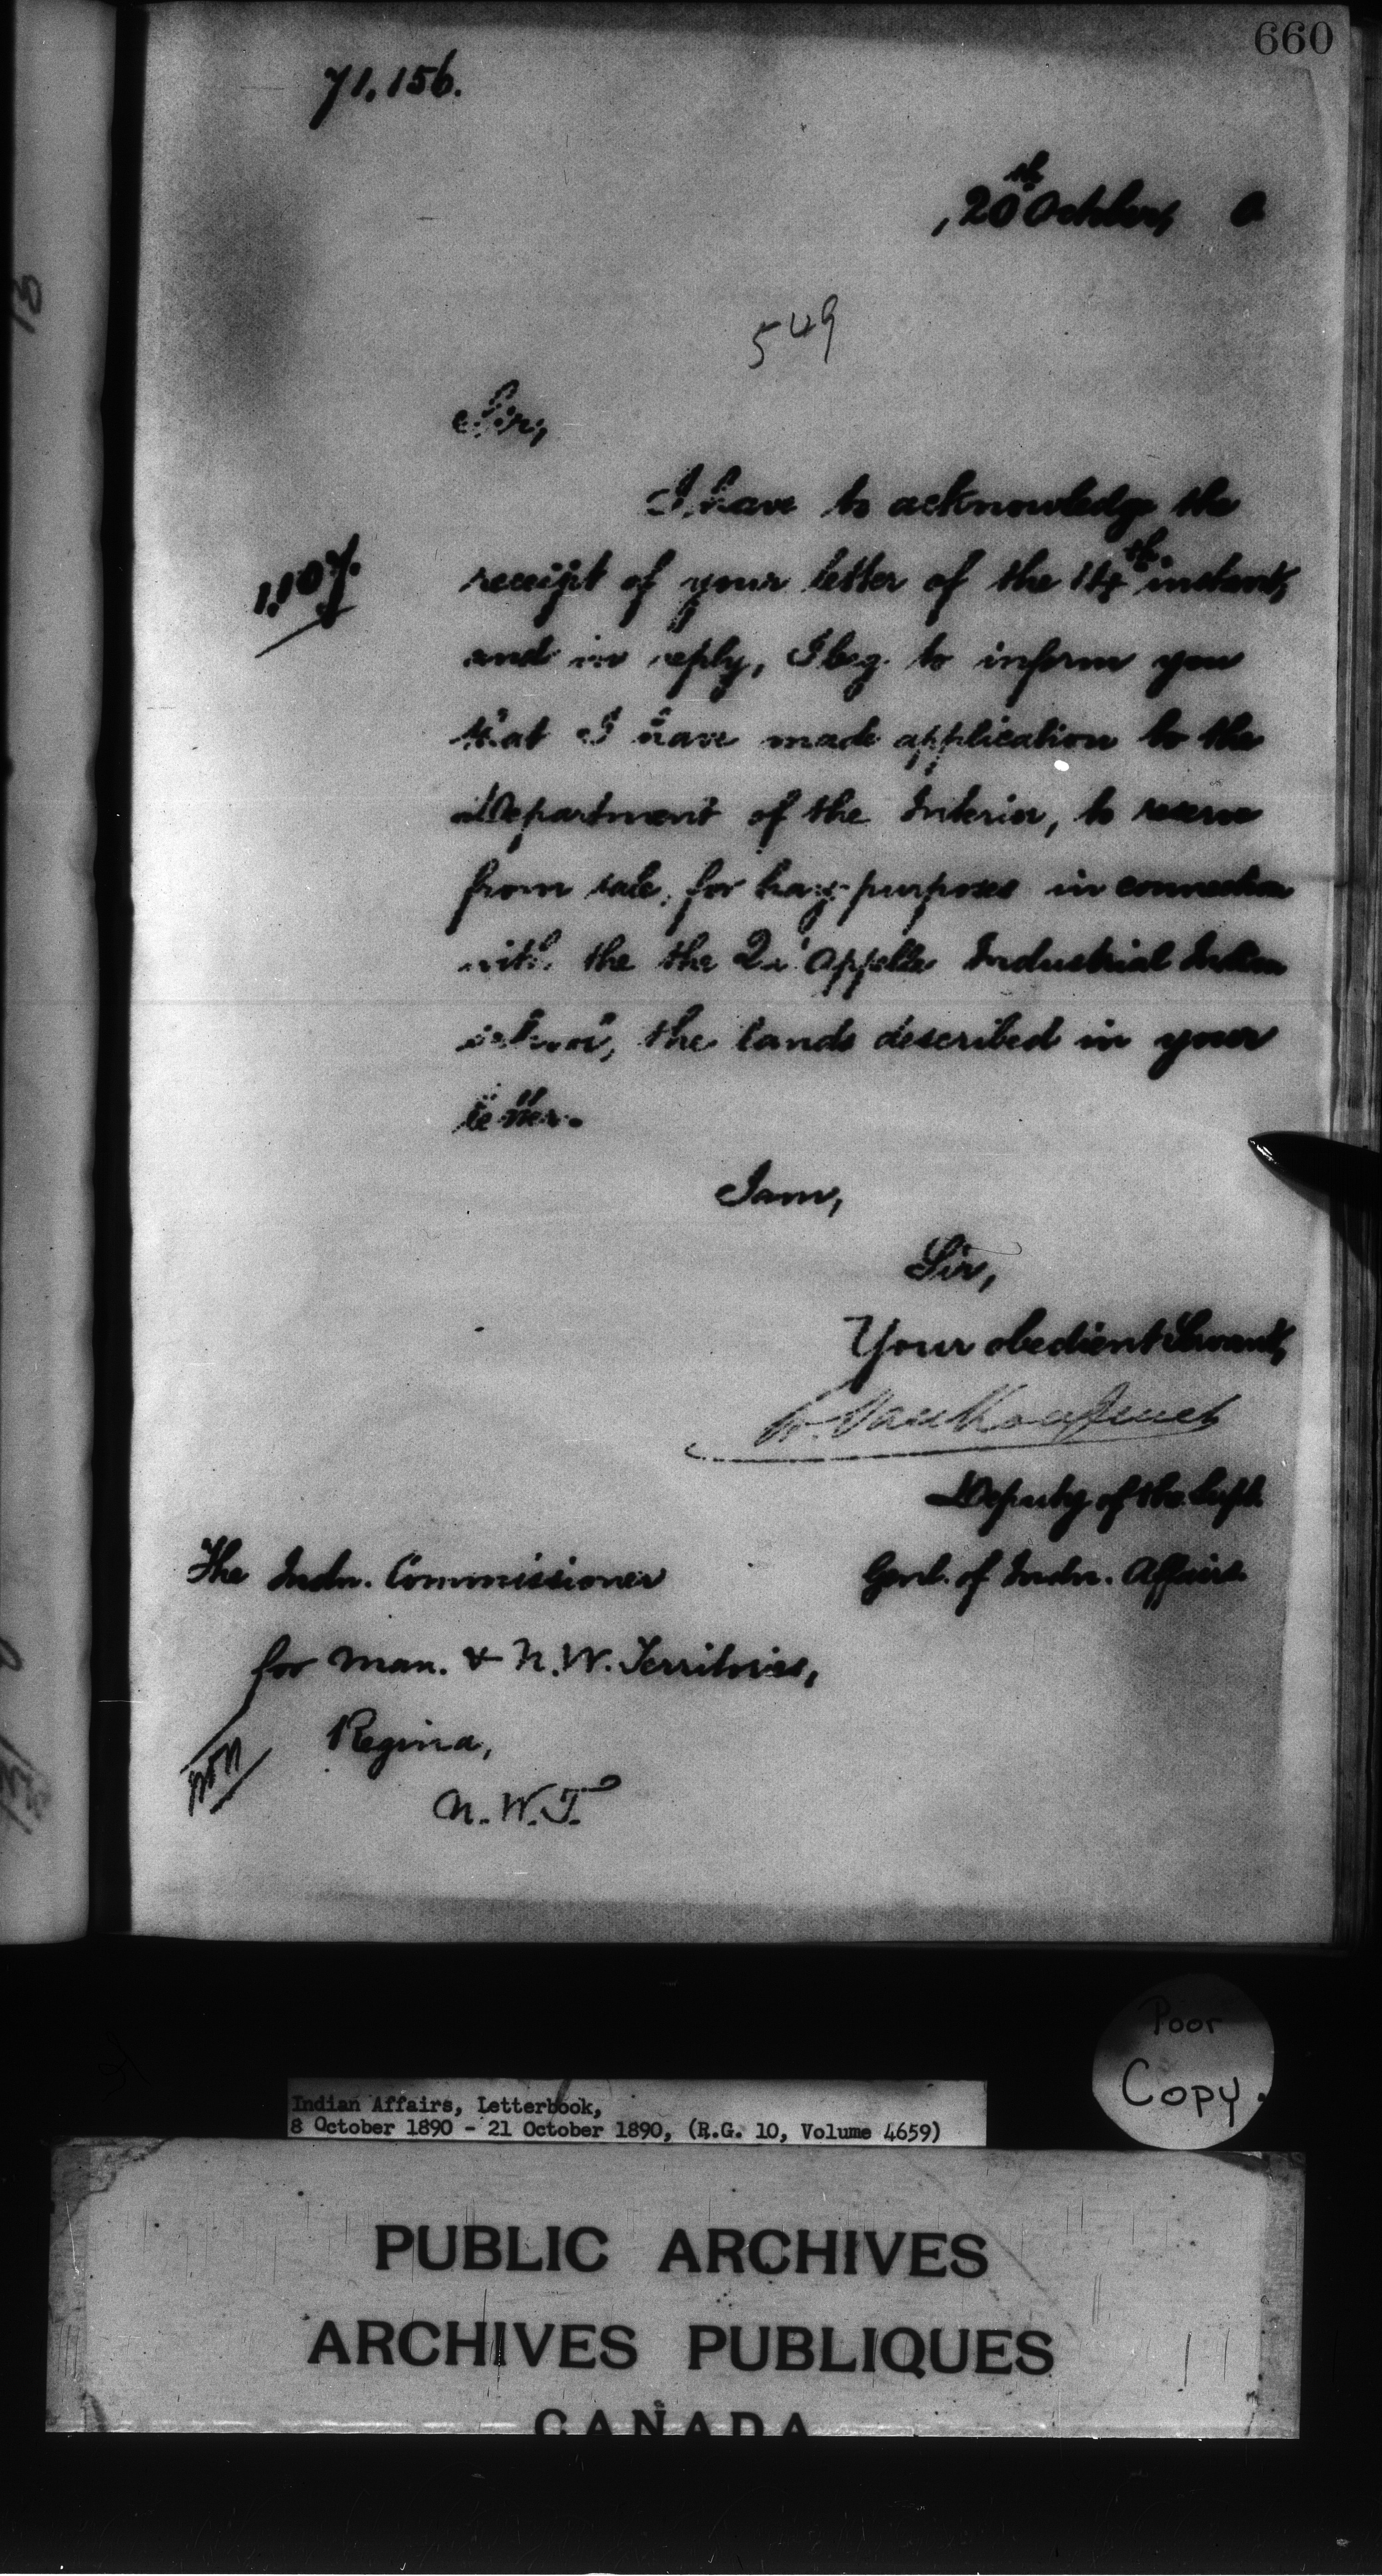 660
71.156.
, 20th October, 0
549
Sir,
I have to acknowledge the
1,107.
receipt of your letter of the 14th instant,
and in reply, I beg to inform you
that I have made application to the
Department of the Interior, to reserve
from sale, for hay purposes in connection
with the the Qu'Appelle Industrial Indian
school, the lands described in your
letter.
I am,
Sir,
Your obedient Servant,
L. VanKoughnet
Deputy of the Supt.
The Indn. Commissioner
Genl. of Indn. Affairs.
for Man. & N.W. Territories,
Regina,
N.W.T.
Poor
Copy.
Indian Affairs, Letterbook,
8 October 1890 - 21 October 1890, (R.G. 10, Volume 4659)
PUBLIC ARCHIVES
ARCHIVES PUBLIQUES
CANADA